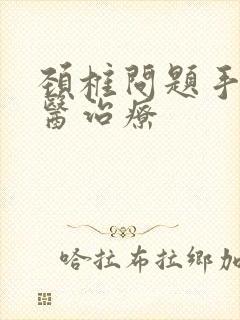 頚椎問題手
醫治療
哈拉布拉鄉加